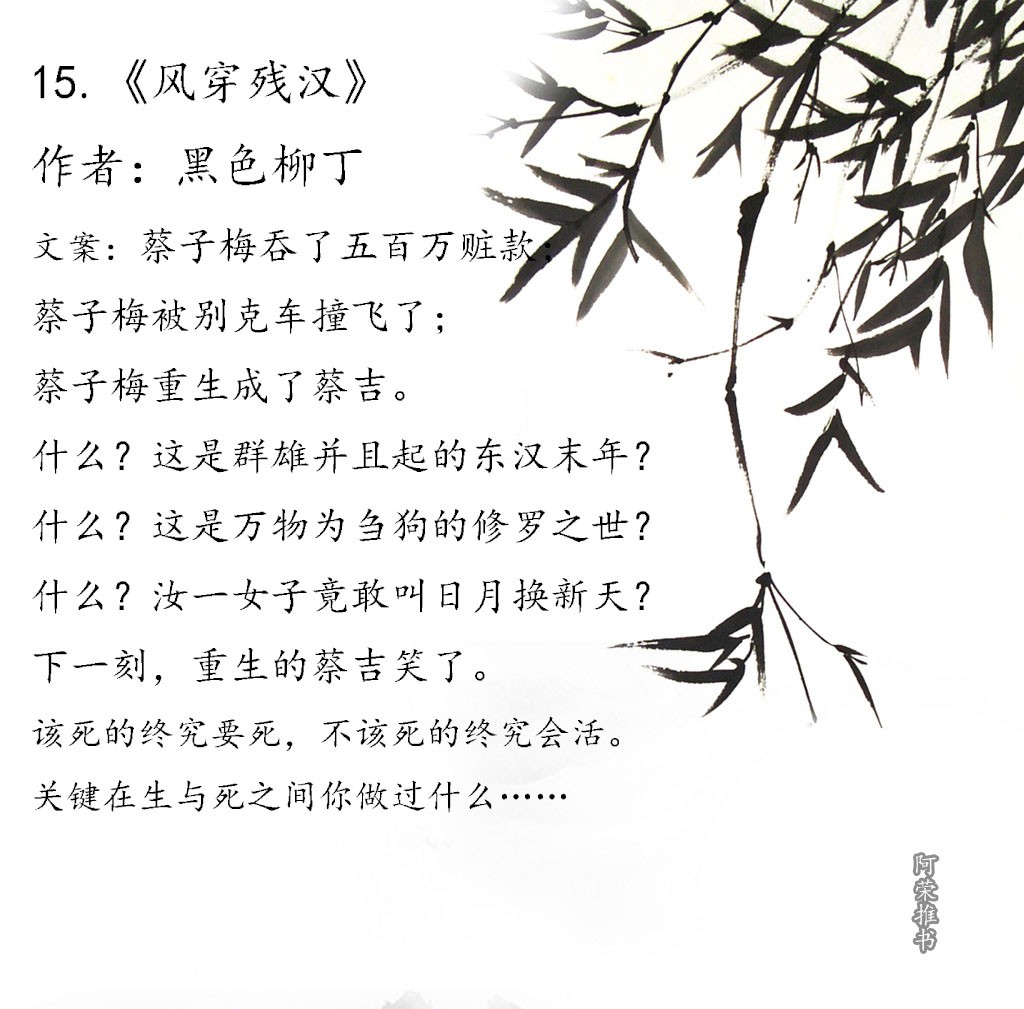 15.《风穿残汉》
作者：黑色柳丁
文案：蔡子梅吞了五百万赃款；
蔡子梅被别克车撞飞了；
蔡子梅重生成了蔡吉。
什么？这是群雄并且起的东汉末年？
什么？这是万物为刍狗的修罗之世？
什么？汝一女子竟敢叫日月换新天？
下一刻，重生的蔡吉笑了。
该死的终究要死，不该死的终究会活。
关键在生与死之间你做过什么……
阿荣推书